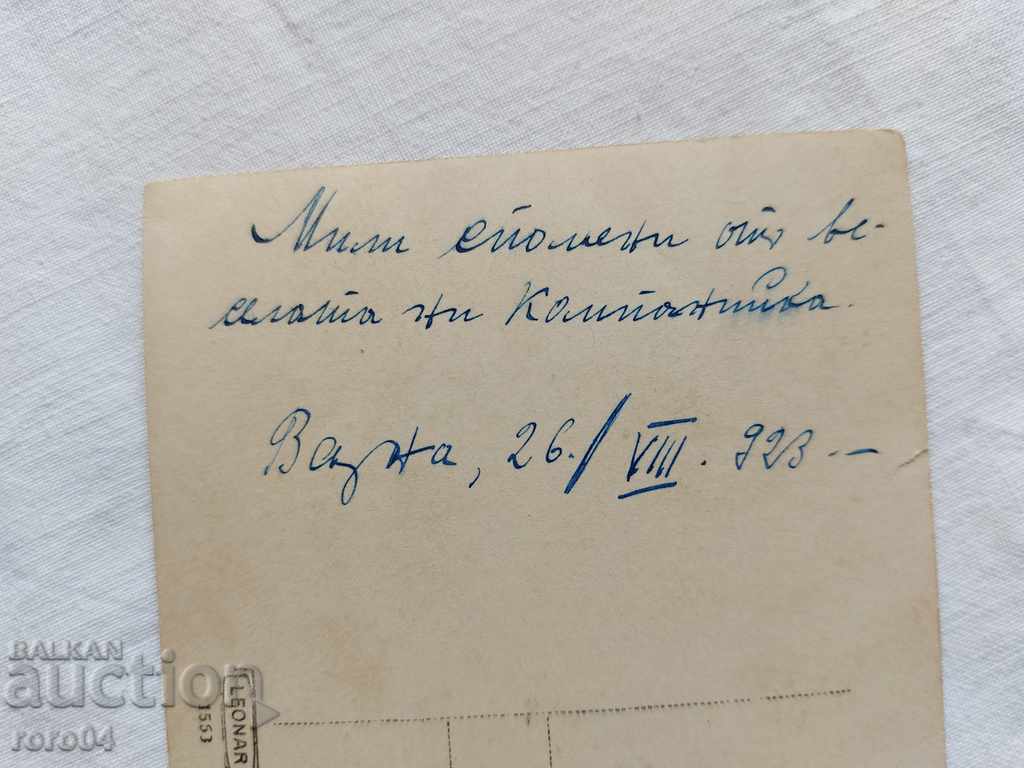 Мили спомени отъ ве-
селата ни Компанийка.
Варна, 26./VIII. 923.—
LEONAR
1553
BALKAN
auction
roro04